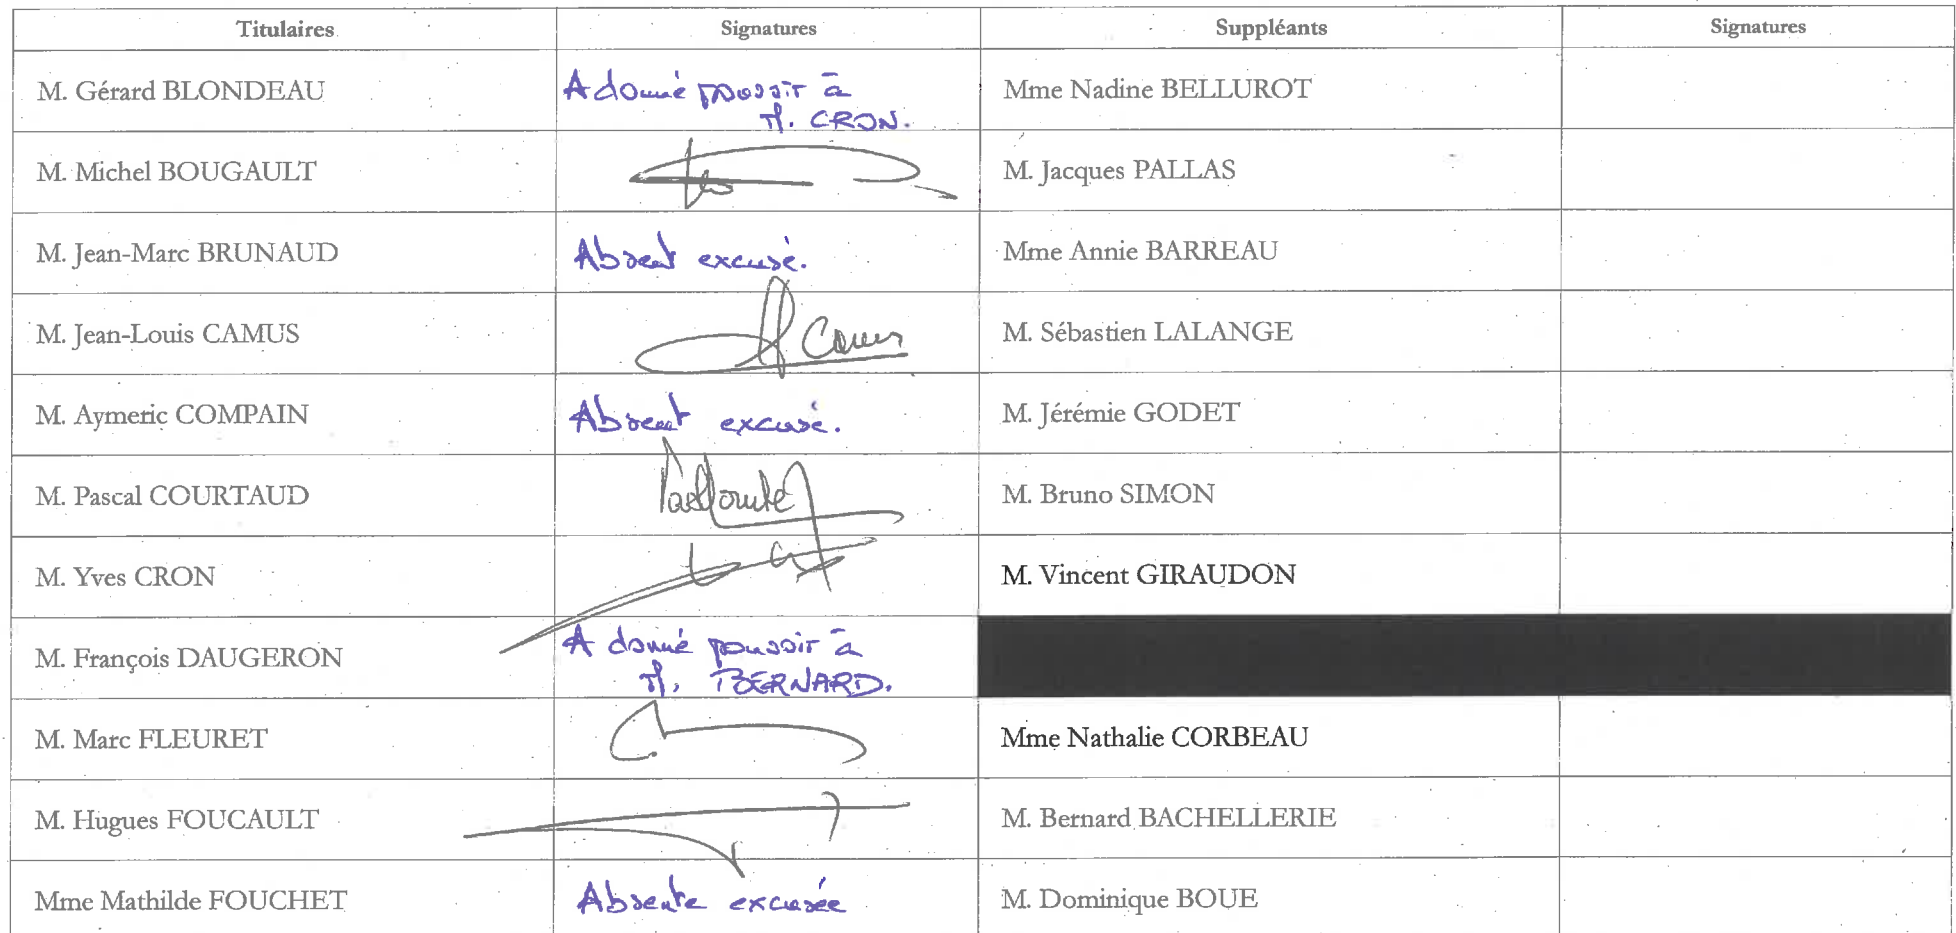 Titulaires Signatures Suppléants Signatures
M. Gérard BLONDEAU A donné pouvoir à Mme Nadine BELLUROT
M. CRON.
M. Michel BOUGAULT M. Jacques PALLAS
M. Jean-Marc BRUNAUD Absent excusé. Mme Annie BARREAU
M. Jean-Louis CAMUS M. Sébastien LALANGE
M. Aymeric COMPAIN Absent excusé. M. Jérémie GODET
M. Pascal COURTAUD M. Bruno SIMON
M. Yves CRON M. Vincent GIRAUDON
M. François DAUGERON A donné pouvoir à
M. BERNARD.
M. Marc FLEURET Mme Nathalie CORBEAU
M. Hugues FOUCAULT M. Bernard BACHELLERIE
Mme Mathilde FOUCHET Absente excusée M. Dominique BOUE